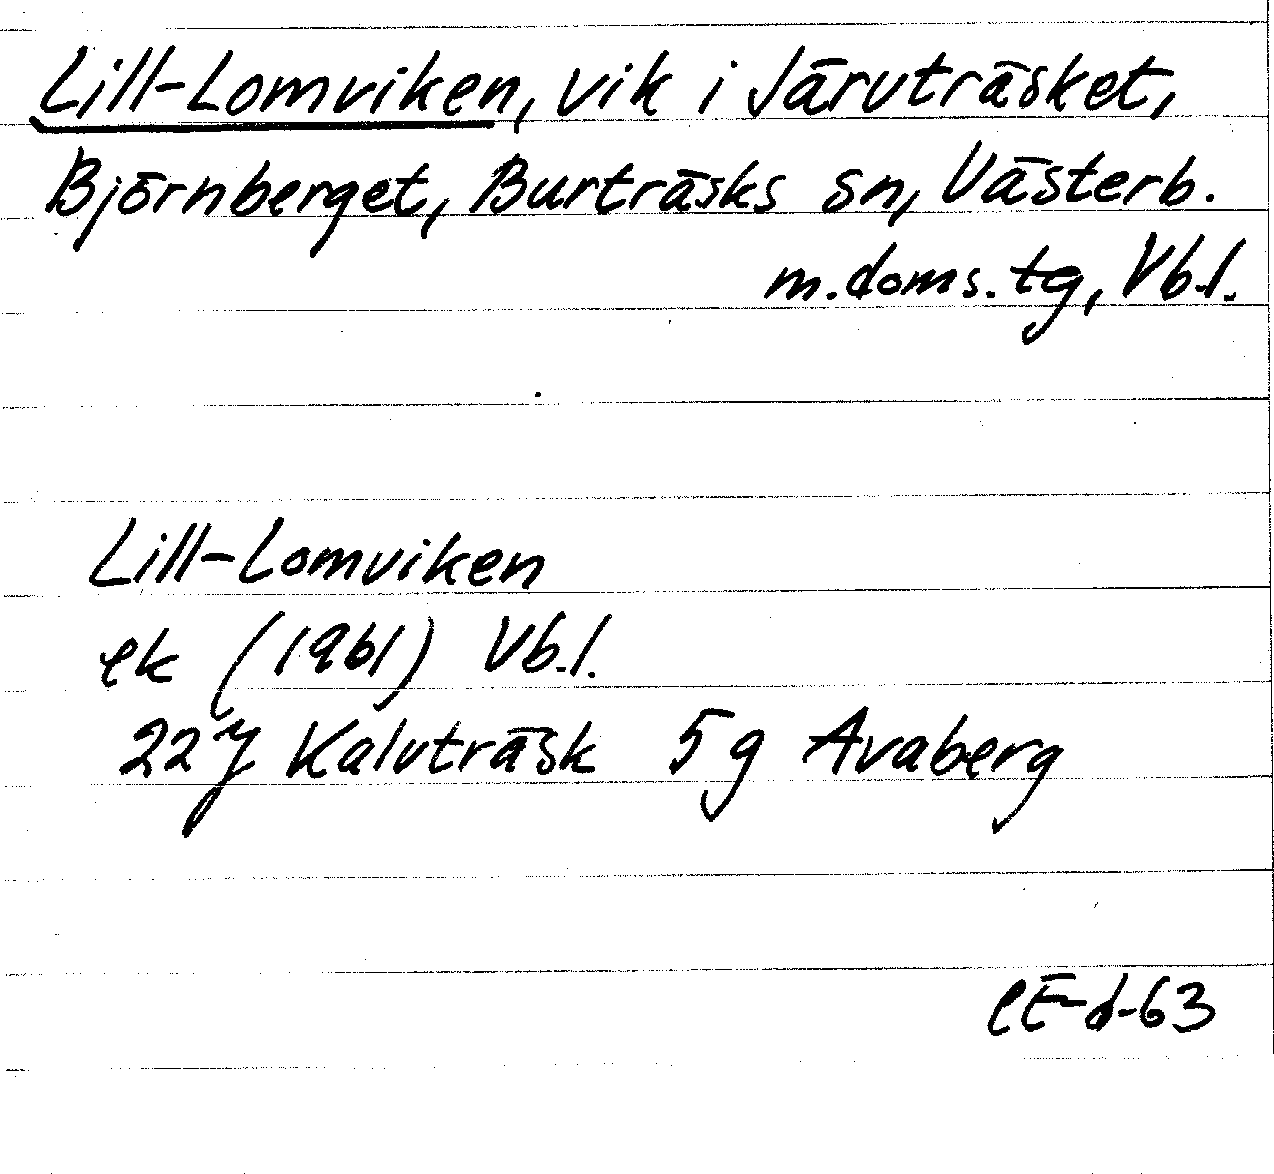 Lill-Lomviken, vik i Järvträsket,
Björnberget, Burträsks sn, Västerb.
m.doms.tg, Vb.l.
Lill-Lomviken
ek (1961) Vb.l.
22J Kalvträsk 5g Avaberg
CE-d-63